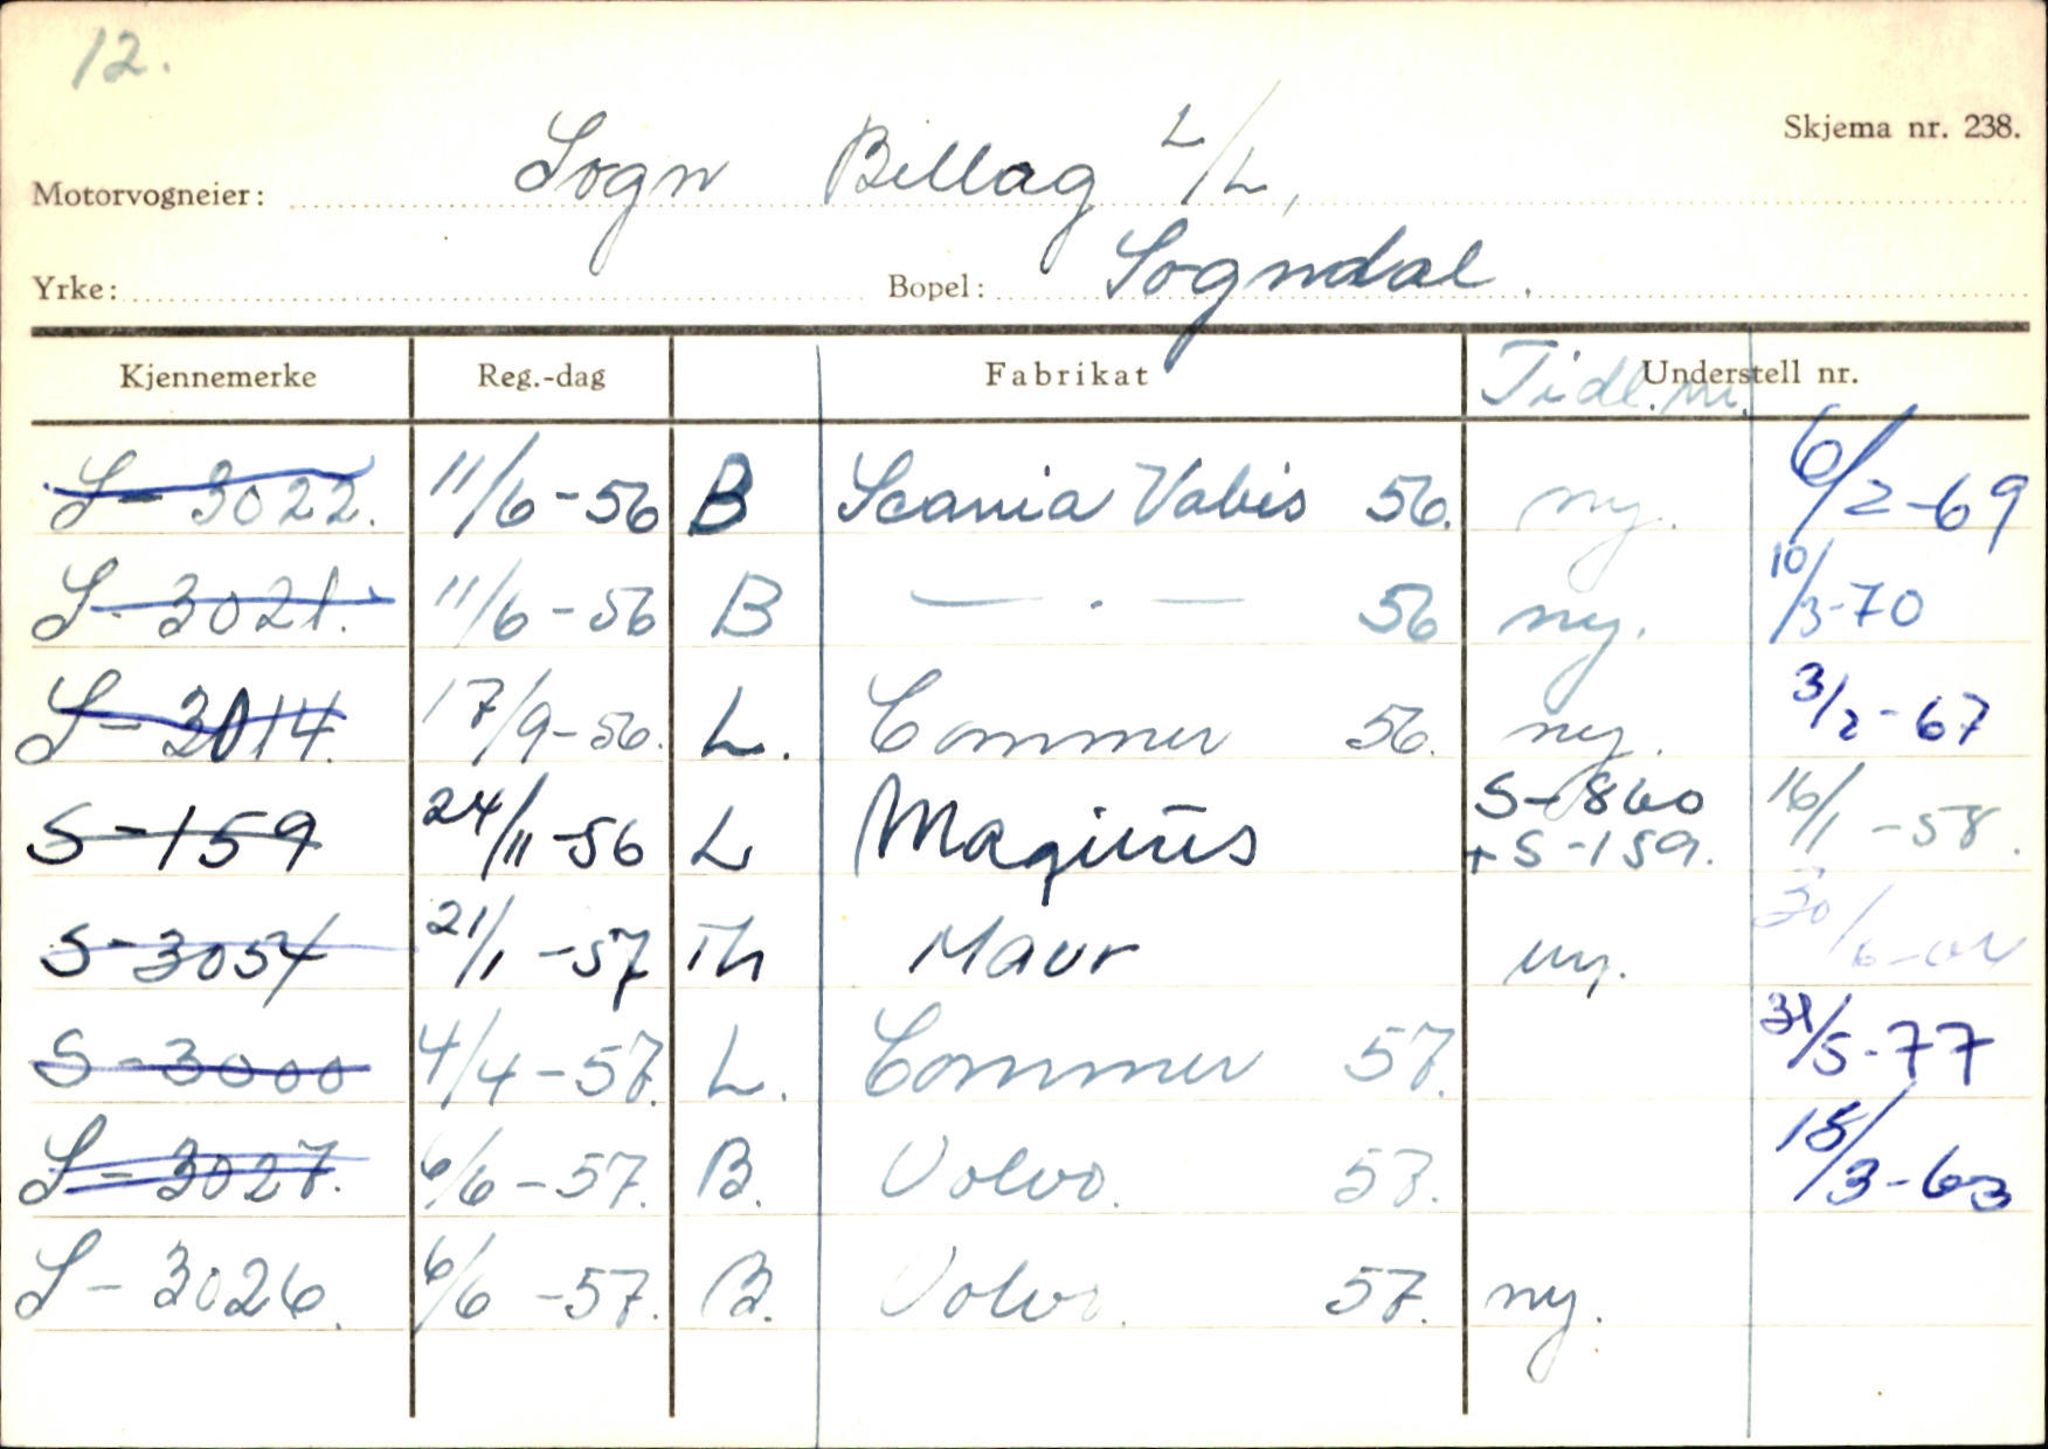 12.
Skjema nr. 238.
Motorvogneier: Sogn Billag L/L,
Yrke: Bopel: Sogndal.
Kjennemerke Reg.-dag Fabrikat Tidl. nr. Understell nr.
S-3022. 11/6-56 B Scania Vabis 56. ny. 6/2-69
S-3021. 11/6-56 B — · — 56 ny. 10/3-70
S-3014. 17/9-56. L. Commer 56. ny. 3/2-67
S-159 24/11-56 L Magirus S-860 + S-159. 16/1-58.
S-3054 21/1-57 Th Maur ny. 30/6-64
S-3000 4/4-57. L. Commer 57. 31/5-77
S-3027. 6/6-57. B. Volvo. 57. 18/3-63
S-3026. 6/6-57. B. Volvo. 57. ny.